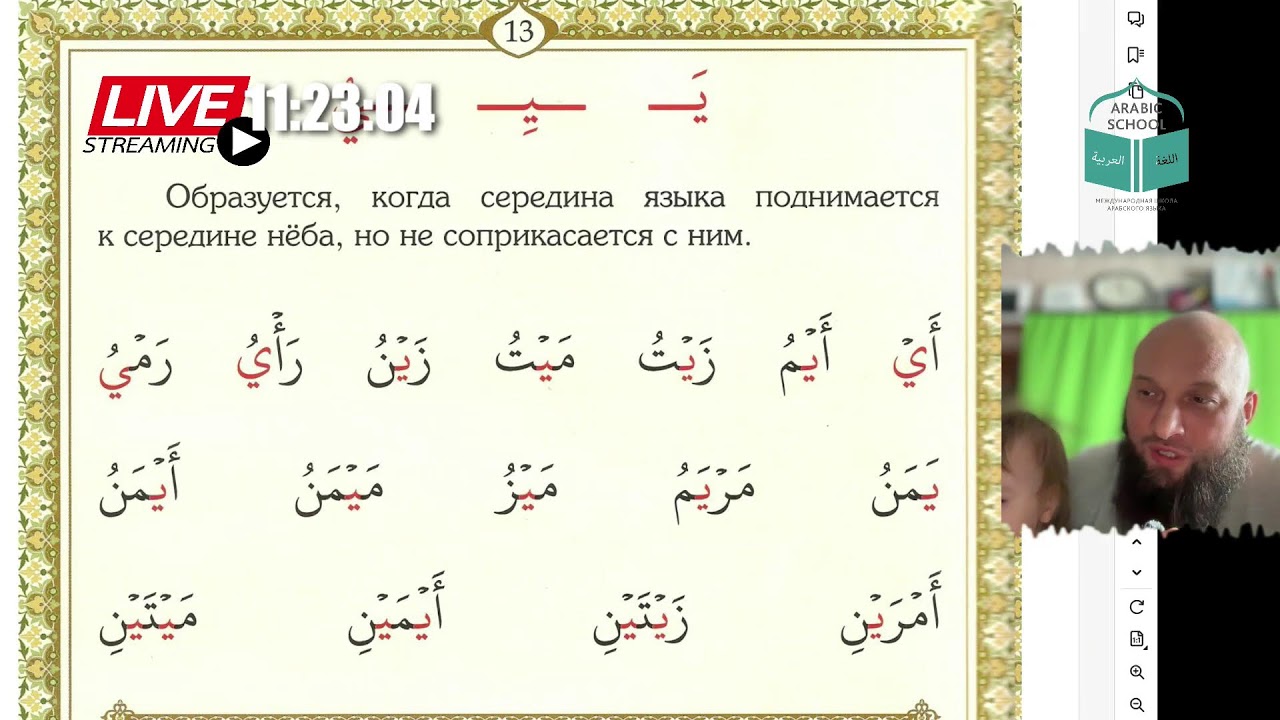 13
يَـ ـيِـ ـيُ
LIVE 11:23:04
STREAMING
Образуется, когда середина языка поднимается
к середине нёба, но не соприкасается с ним.
أَيْ أَيْمُ زَيْتُ مَيْتُ زَيْنُ رَأْيُ رَمْيُ
يَمَنُ مَرْيَمُ مَيْزُ مَيْمَنُ أَيْمَنُ
أَمْرَيْنِ زَيْتَيْنِ أَيْمَيْنِ مَيْتَيْنِ
ARABIC
SCHOOL
اللغة العربية
МЕЖДУНАРОДНАЯ ШКОЛА
АРАБСКОГО ЯЗЫКА
1:1